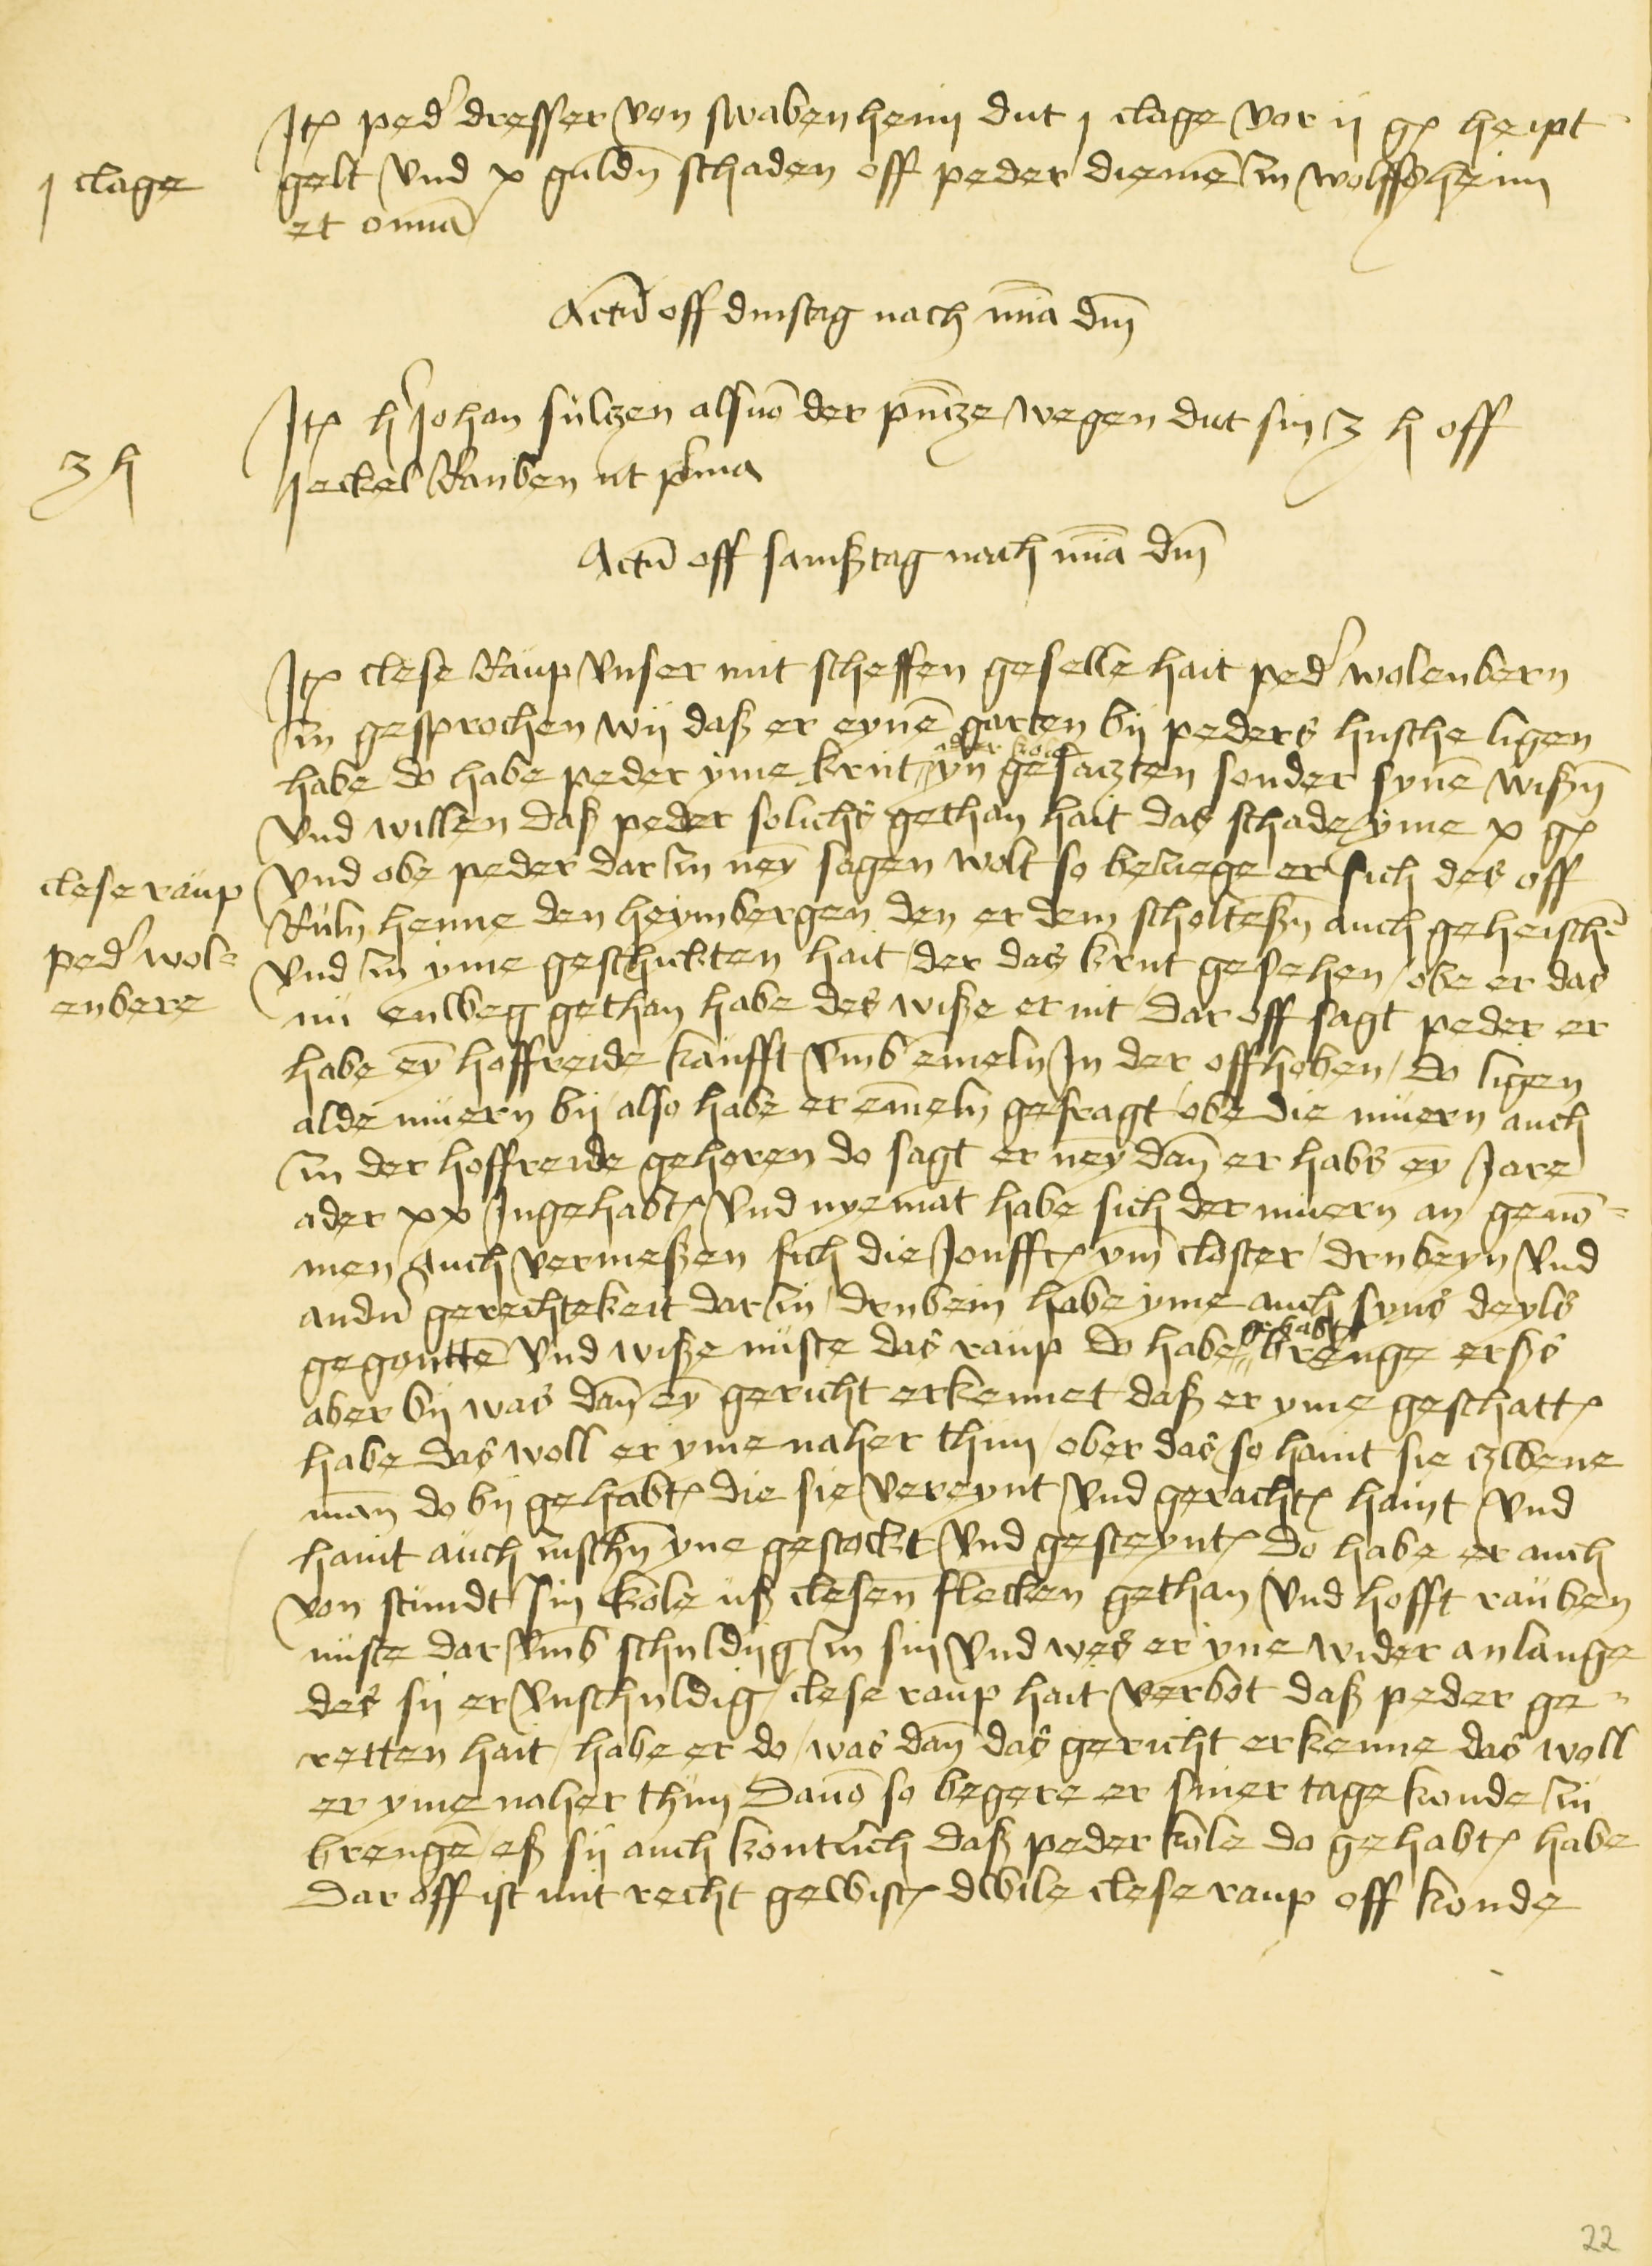 Jt(em) ped(er) dresser von swabenheim dut j clage vor ij g(ulden) heipt
gelt vnd x guldn̄ schaden off peder diemē zu wolffsheim
j clage
et om̄ia
Actū off dinstag nach m̄ia dm̄
Jt(em) h(er) Johan sültzen als vō der p̄ntze wegen dut sin 3 h off
3 h
Jeckel Rauben ut p(ri)ma
Actū off samßtag nach m̄ia dm̄
Jt(em) clese Raup vnser mit scheffen geselle hait ped(er) wolenbern
zu gesprochen wij daß er eynē garten bij peders husche ligen
ader kole
habe do habe peder yme krut yn gesatzten sonder synē wißn̄
vnd willen daß peder solichs gethan hait das schade yme x g(ulden)
vnd obe peder dar zu neȳ sagen wolt so beziege er sich des off
clese raup
Ruln henne den heymbergen den er dem scholteßn̄ auch geheischē
ped(er) wol=
enbere
vnd zu yme geschickten hait der das krut gesehen / obe er das
nu enweg gethan habe des wiße er nit / dar off sagt peder er
habe eȳ hoffreide kaufft vmb emeln In der offhoben / do ligen
alde muern bij / also habe er em̄eln gefragt / obe die muern auch
zu der hoffreide gehoren do sagt er neȳ dan̄ er habs eȳ Jare
ader xx Jngehabt(en) vnd nyemāt habe sich der muern an genō=
men auch vermeßen sich die Jonffr(auwen) ym closter / drubeyn vnd
and(er)n gerechtekeit dar zu / drubein habe yme auch syns deyls
gehabt
gegontten vnd wiße nuste das raup do habe brenge erßs
aber bij was dan̄ eȳ gericht erkennet daß er yme geschatt(en)
habe das woll er yme naher thun / ober das so haint sie zwene
man̄ do bij gehabt(en) die sie vereynt vnd geracht(en) haint vnd
haint auch zuschn̄ yne gestockt vnd gesteynt(en) do habe er auch
von stundt sin kole uß clesen flecken gethan vnd hofft rauben
nuste dar vmb schuldijg zu sin vnd wes er yne wider anlange
des sij er vnschuldig / clese raup hait verbot daß peder ge=
retten hait / habe er do / was dan̄ das gericht erkenne das woll
er yme naher thun Dauō so begere er siner tage konde zu
brengē / eß sij auch kontlich daß peder kole do gehabt(en) habe
Dar off ist mit recht gewist(en) dwile clese raup off konde
22